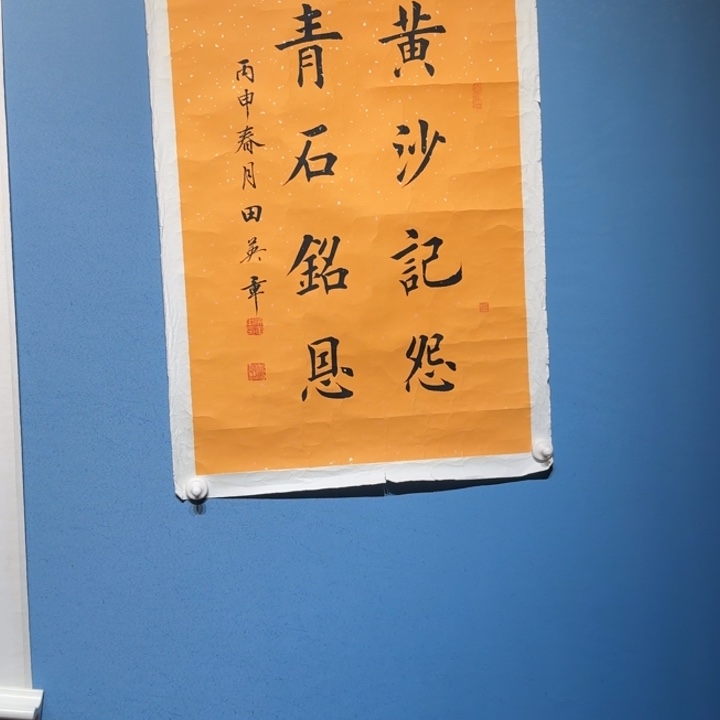 黄沙記怨
青石銘恩
丙申春月田英章